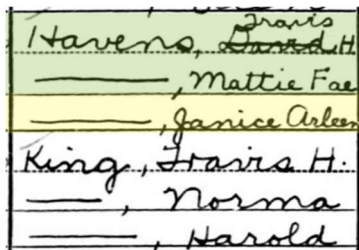 Travis
Havens, David H
———, Mattie Fae
———, Janice Arleen
King, Travis H.
———, Norma
———, Harold